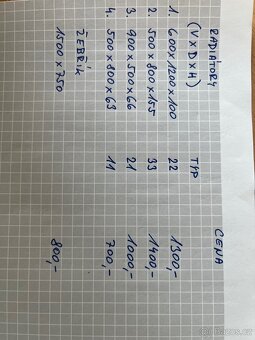 RADIATORY TYP CENA
(V x D x H)
1. 600 x 1200 x 100 22 1300,-
2. 500 x 800 x 155 33 1400,-
3. 900 x 500 x 66 21 1000,-
4. 500 x 800 x 63 11 700,-
ŽEBŘÍK
1500 x 750 800,-